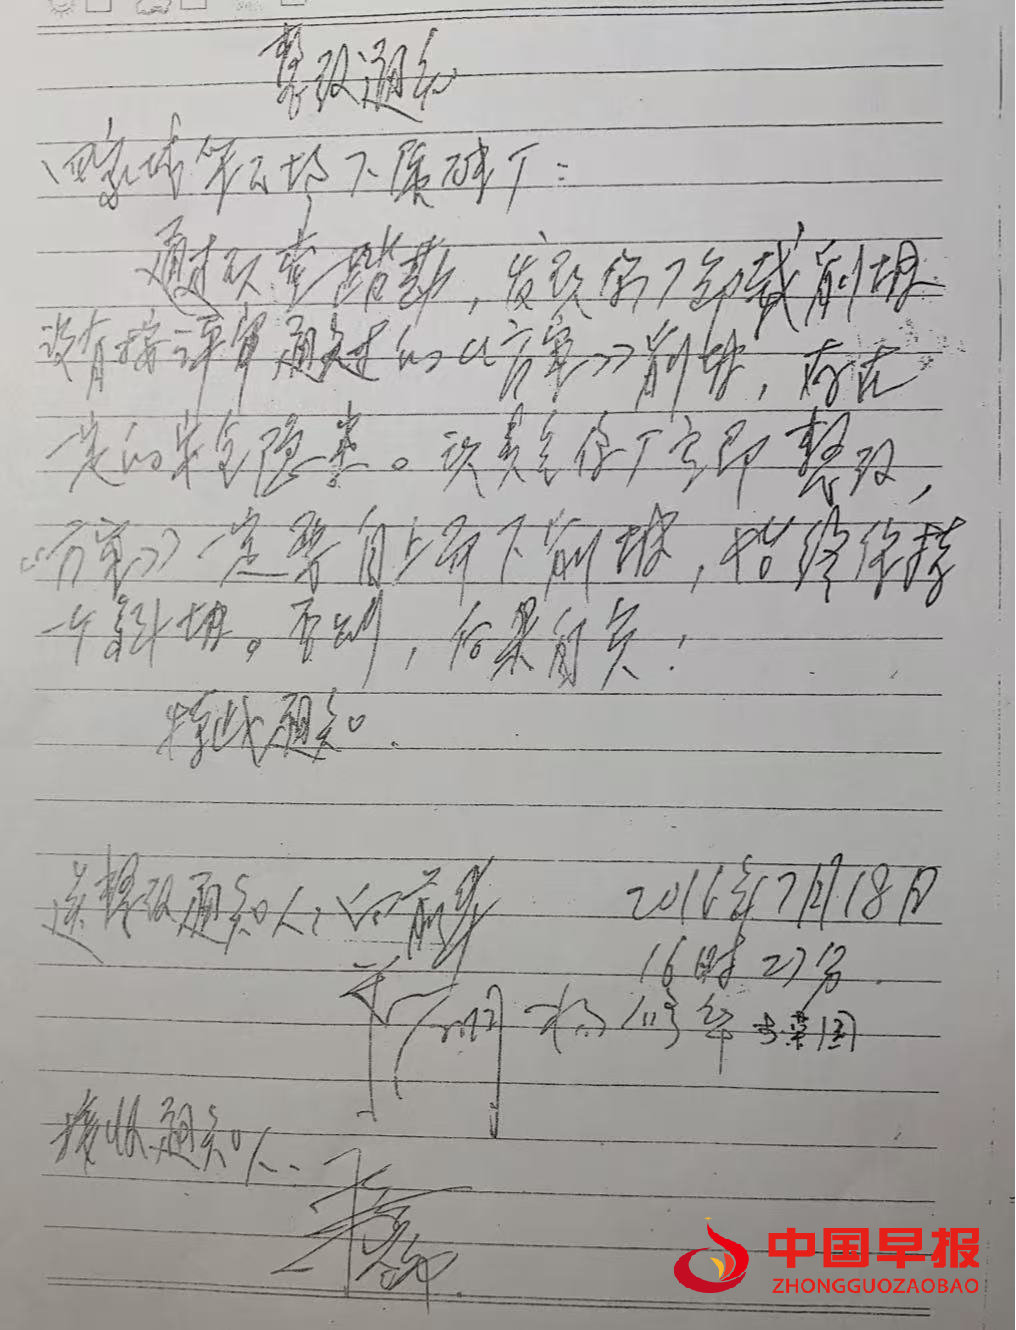 整改通知
四家城笨石场下属砖厂：
通过现查踏勘，发现你厂卸载削坡
没有按评审通过的《方案》削坡，存在
一定的安全隐患。该责令你厂立即整改，
《方案》一定要自上而下削坡，始终保持
一个斜坡。否则，后果自负！
特此通知.
送整改通知人： 2016年7月18日
16时27分.
接收通知人：
中国早报
ZHONGGUOZAOBAO